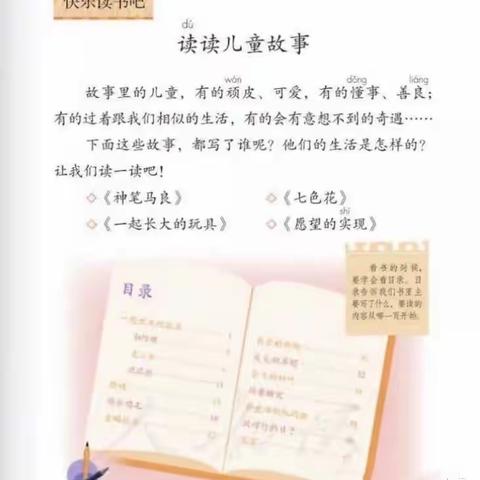 快乐读书吧
dú
读读儿童故事
wán dǒng liáng
故事里的儿童，有的顽皮、可爱，有的懂事、善良；
有的过着跟我们相似的生活，有的会有意想不到的奇遇……
下面这些故事，都写了谁呢？他们的生活是怎样的？
让我们读一读吧！
◇《神笔马良》 ◇《七色花》
shí
◇《一起长大的玩具》 ◇《愿望的实现》
看书的时候，
要学会看目录。目
录告诉我们书里主
要写了什么，要读的
内容从哪一页开始。
目录